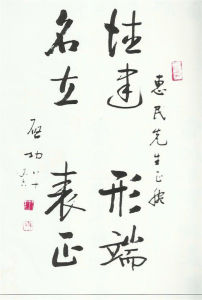 惠民先生正腕
德建形端
名立表正
启功